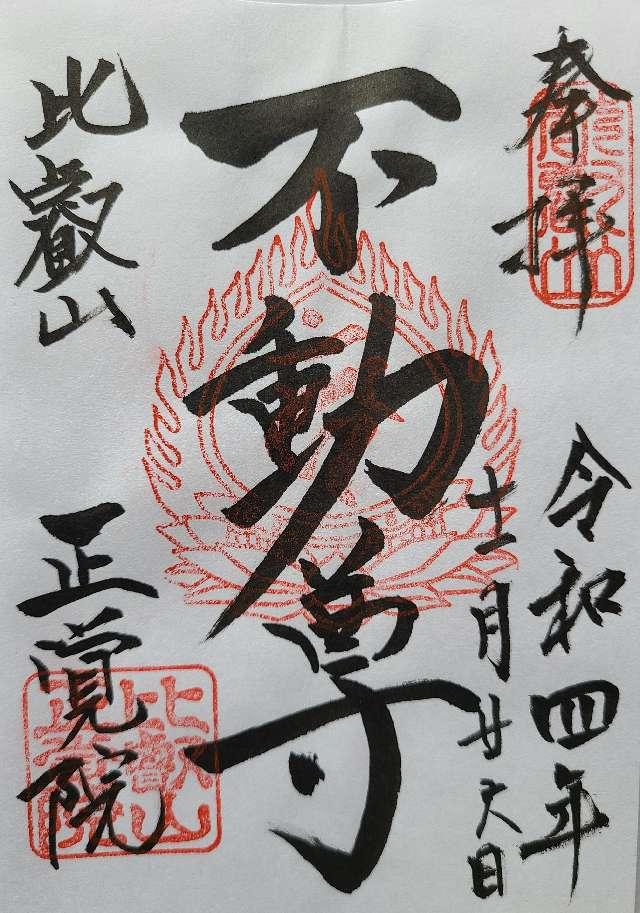 奉拝
令和四年
十二月廿六日
不動尊
比叡山
正覚院